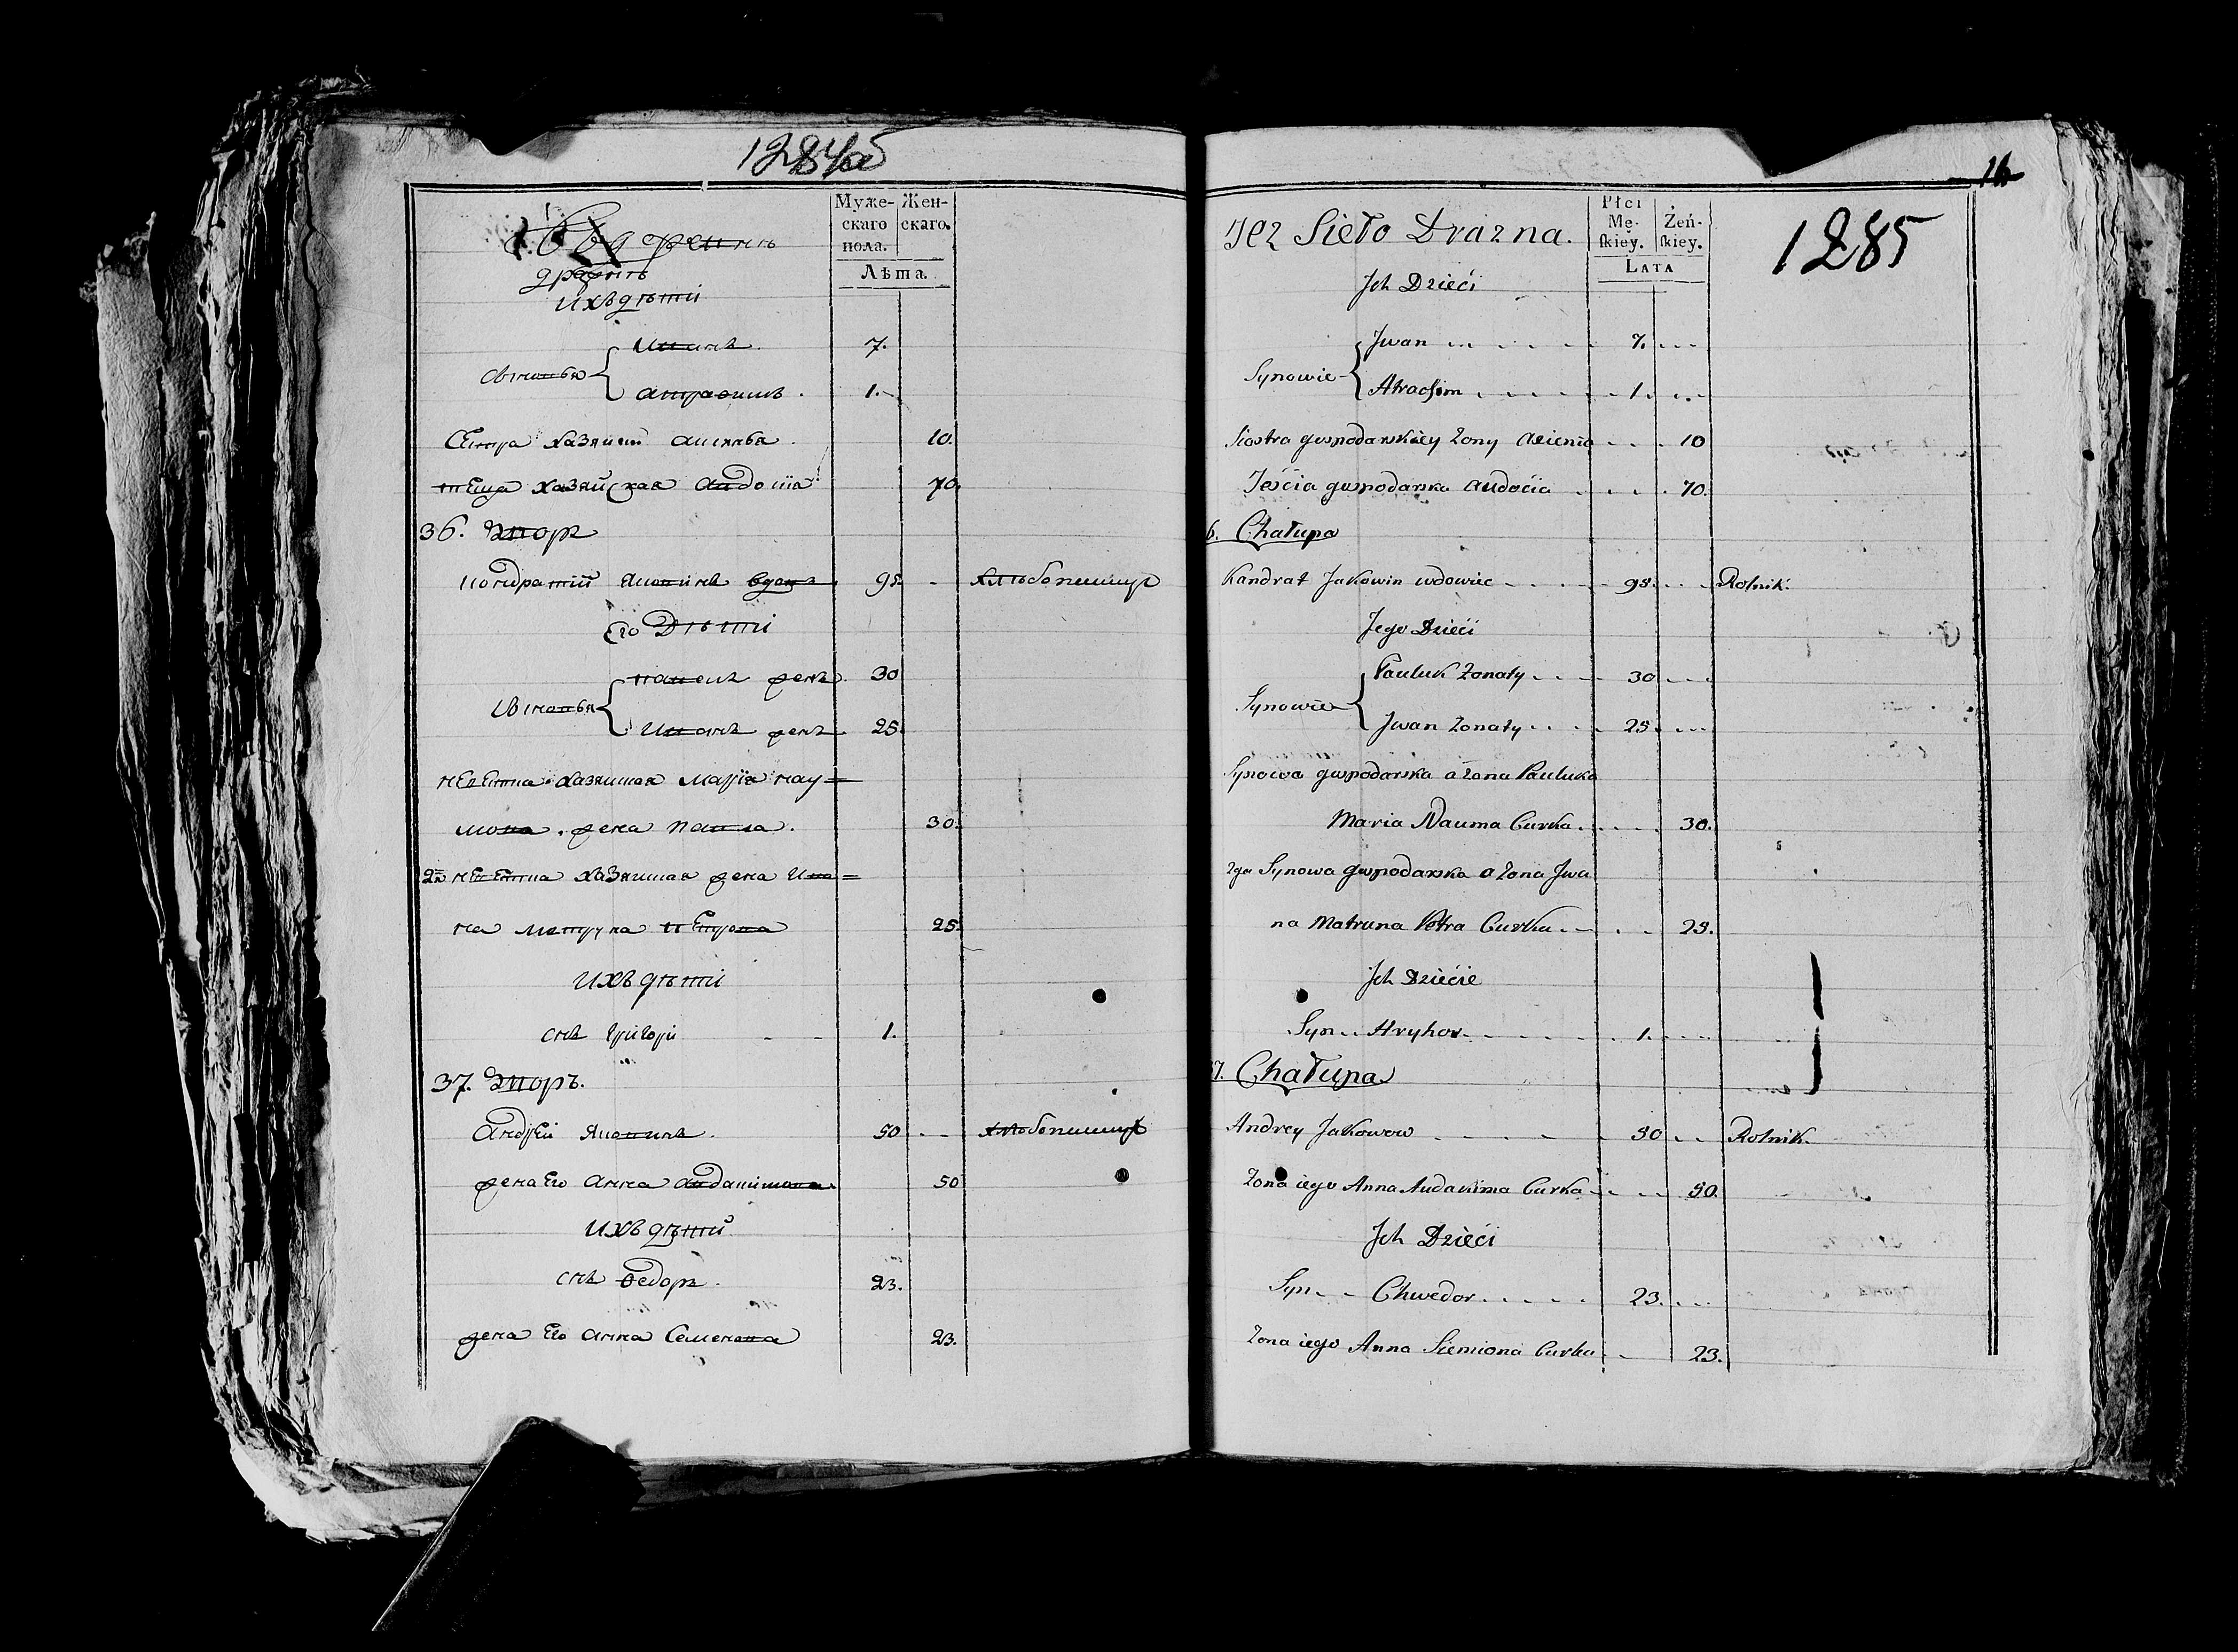 Муже-
скаго
пола.
Жен-
скаго.
Лѣта.
ихъ дѣти
Иванъ 7.
Сыновья
1.
10.
теща хазяйская Авдотія 70.
36. Дворъ
Кондратій Яковинъ вдовъ 95. хлѣбопашецъ
Его Дѣти
Павелъ женъ 30
Сыновья
Иванъ женъ 25.
невестка хазяиная Марія Нау=
мова жена Павла 30.
2я невестка хазяиная жена Ива=
на Матруна Петрова 25.
ихъ дѣти
снъ Григори 1.
37. Дворъ.
Андрей Яковинъ 50 хлѣбопашецъ
жена Его Анна Авдакимова 50
ихъ дѣти
снъ Ѳедоръ 23.
жена Его Анна Семенова 23.
16
1285
Tez Sieło Drazna.
Płci
Mę-
skiey.
Żeń-
skiey.
Lata
Jch Dzieci
Jwan 7.
Synowie
1.
Siostra gospodarskiey żony 10
Teścia gospodarska Audocia 70.
6. Chałupa
Kandrat Jakowin wdowiec 95. Rolnik.
Jego Dzieci
Pauluk żonaty 30
Synowie
Jwan żonaty 25.
Synowa gospodarska a żona Pauluka
Maria Nauma Curka 30.
2ga Synowa gospodarska a żona Jwa
na Matruna Petra Curka 25.
Jch Dziecie
Syn Hryhor 1.
37. Chałupa
Andrey Jakowow 50 Rolnik.
Żona iego Anna Audakima Curka 50.
Jch Dzieci
Syn Chwedor 23.
Żona iego Anna Siemiona Curka 23.